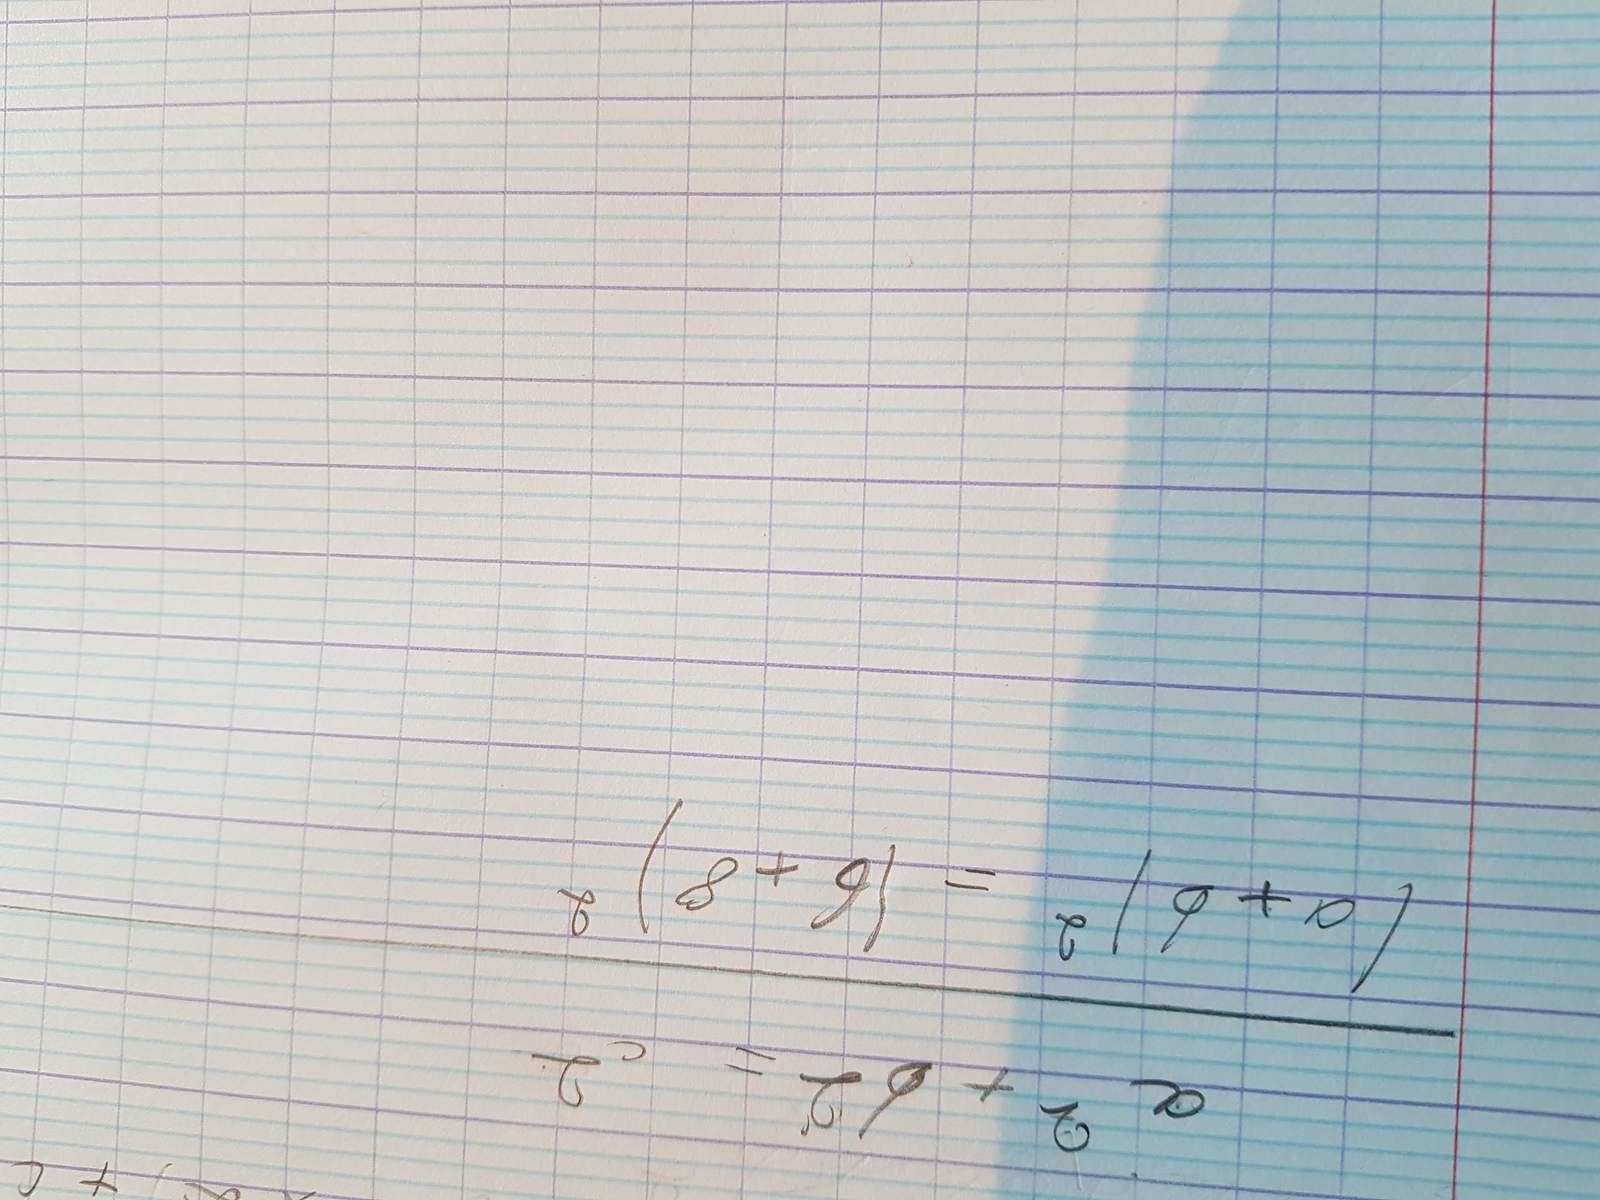 a² + b² = c²
(a + b)² = (6 + 8)²